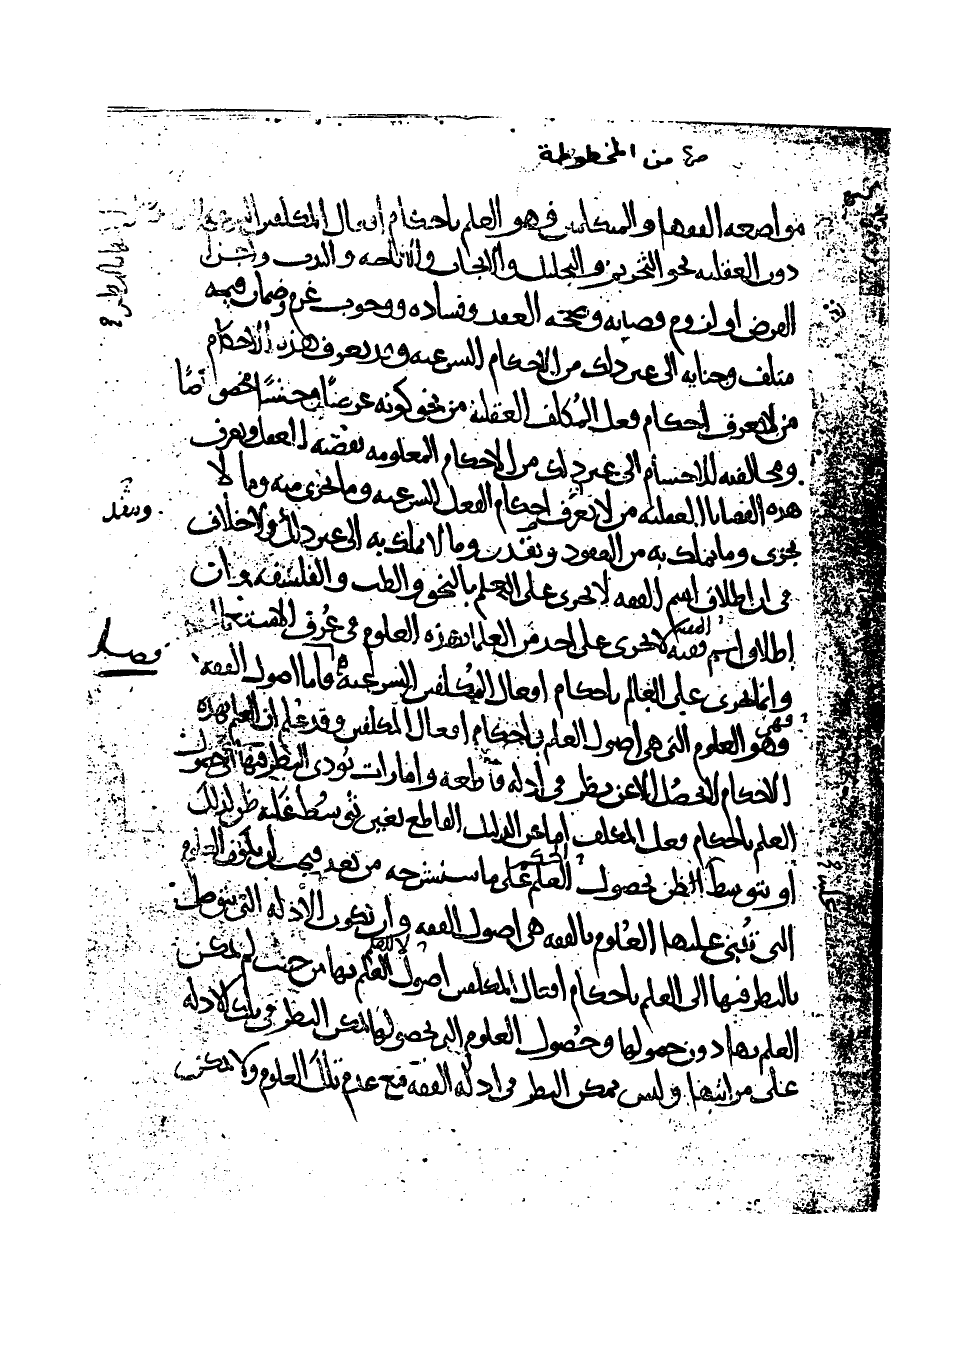 ص٤ من المخطوطة
مواضعه الفقها والمتكلمين فهو العلم باحكام افعال المكلفين الشرعية
دون العقلية نحو التحريم والتحليل والايجاب والاباحه والندب واجزا
الفرض او لزوم قضايه وصحة العقد وفساده ووجوب غرم وضمان قيمه
متلف وجنايه الى غير ذلك من الاحكام الشرعيه وقد يعرف هذه الاحكام
من لا يعرف احكام فعل المكلف العقلية من نحو كونه عرضا وجنسا مخصوصا
ومخالفته للاجسام الى غير ذلك من الاحكام المعلومه بقضية العقل ويعرف
هذه القضايا العقليه من لا يعرف احكام الفعل الشرعيه وما يجزى منه وما لا
يجزى وما يملك به من العقود وينفذ وما لا يملك به الى غير ذلك ولا خلاف
وينفذ
فى ان اطلاق اسم الفقه لا يجرى على العلم بالنحو والطب والفلسفه وان
اطلاق اسم فقيه لا يجرى على احد من العلما بهذه العلوم فى عُرف الاستعمال
وانما يجرى على العالم باحكام افعال المكلفين الشرعية واما اصول الفقه
فصل
فهو العلوم التى هى اصول العلم باحكام افعال المكلفين وقد علم ان العلم بهذه
فهى
الاحكام لا يحصل الا عن نظر فى أدله قاطعه وامارات يؤدى النظر فيها الى حصول
العلم باحكام فعل المكلف اما عن الدليل القاطع بغير توسط غلبه ظن لذلك
او بتوسط الظن بحصول العلم على ما سنشرحه من بعد فيجب ان يكون العلوم
التى تُبنى عليها العلوم بالفقه هى اصول الفقه وان تكون الأدله التى يتوصل
بالنظر فيها الى العلم باحكام افعال المكلفين اصول العلم بها من حيث لم يمكن
العلم بها دون حصولها وحُصول العلوم التى بحصولها يمكن النظر فى تلك الادله
على مراتبها وليس يمكن النظر فى ادلة الفقه مع عدم تلك العلوم ولا يمكن